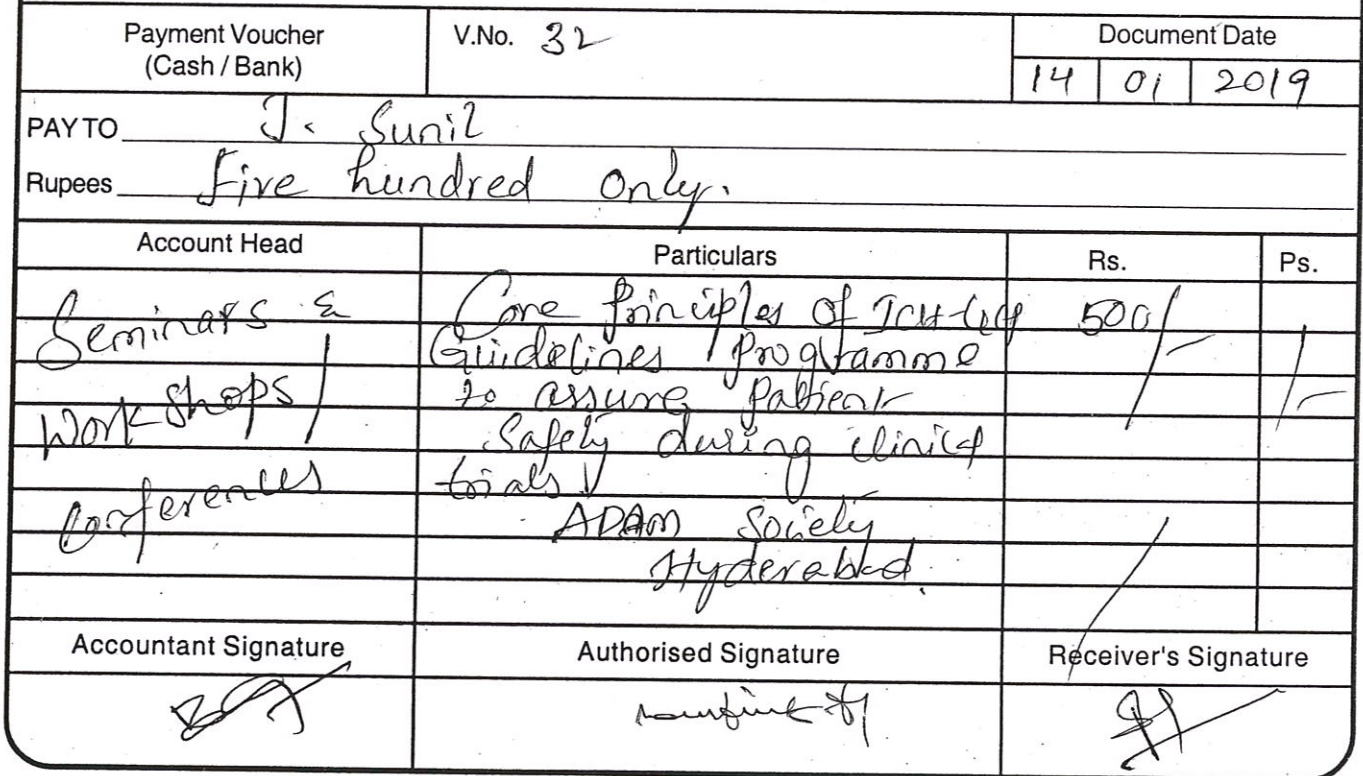 Payment Voucher
(Cash / Bank)
V.No. 32
Document Date
14 01 2019
PAY TO J. Sunil
Rupees Five hundred only.
Account Head Particulars Rs. Ps.
Seminars &
Work shops /
Conferences
Core Principles of ICH-GCP
Guidelines Programme
to assure Patient
Safety during clinical
trials
ADAM Society
Hyderabad.
500/-
/-
Accountant Signature Authorised Signature Receiver's Signature